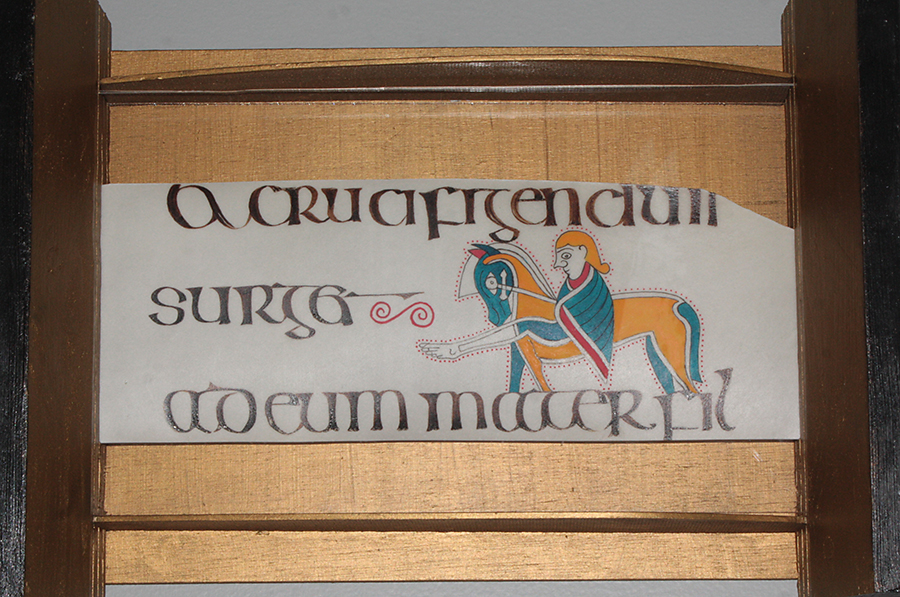 a crucifigendum
surget
ad eum mater fil